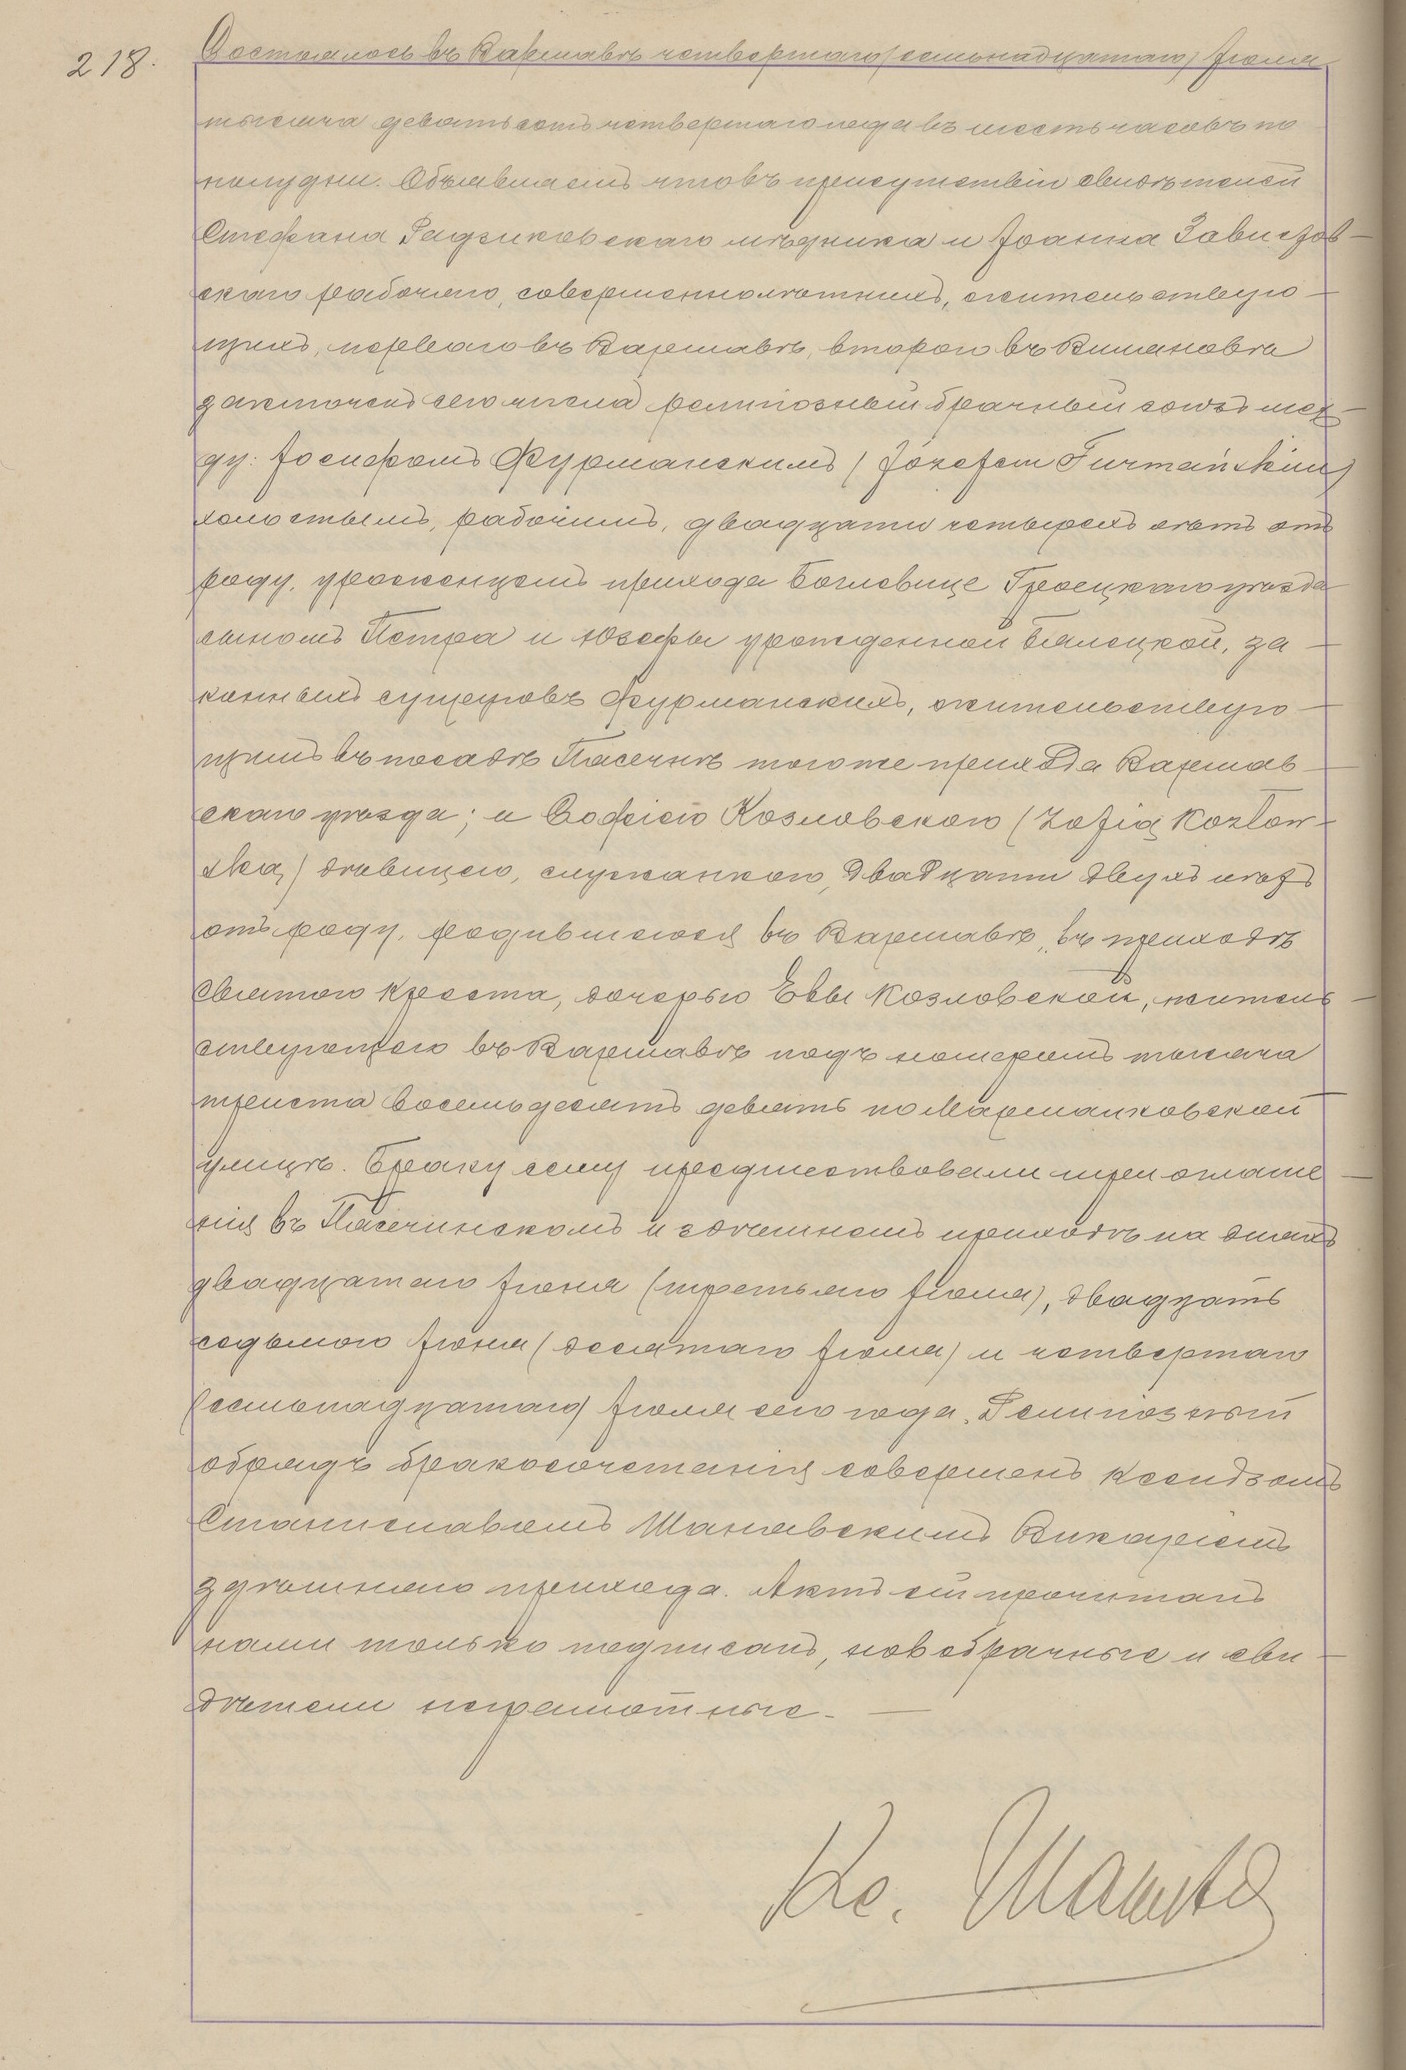 218.
Состоялось въ Варшавѣ четвертаго (семьнадцатаго) Іюля
тысяча девятьсотъ четвертаго года въ шесть часовъ по
полудни. Объявляемъ что въ присутствіи свидѣтелей
Стефана Радзиковскаго мѣдника и Іоанна Завистов-
скаго рабочаго, совершеннолѣтнихъ, жительствую-
щихъ, перваго въ Варшавѣ, второго въ Вилановѣ
заключенъ сего числа религіозный брачный союзъ меж-
ду: Іосифомъ Фурманскимъ (Józefem Furmańskim)
холостымъ, рабочимъ, двадцати четырехъ лѣтъ отъ
роду, уроженцемъ прихода Богловице Гроецкаго уѣзда
сыномъ Петра и Юзефы урожденной Бялецкой, за-
конныхъ супруговъ Фурманскихъ, жительствую-
щимъ въ посадѣ Пясечнѣ тогоже прихода Варшав-
скаго уѣзда; и Софіею Козловскою (Zofią Kozłow-
ską) дѣвицею, служанкою, двадцати двухъ лѣтъ
отъ роду, родившеюся въ Варшавѣ, въ приходѣ
Святого Креста, дочерью Евы Козловской, житель-
ствующею въ Варшавѣ подъ номеромъ тысяча
триста восемьдесятъ девять по Маршалковской
улицѣ. Браку сему предшествовали три оглаше-
нія въ Пясечинскомъ и здѣшнемъ приходѣ на дняхъ
двадцатаго Іюня (третьяго Іюля), двадцать
седьмого Іюня (десятаго Іюля) и четвертаго
(семьнадцатаго) Іюля сего года. Религіозный
обрядъ бракосочетанія совершенъ Ксендзомъ
Станиславомъ Шанявскимъ Викаріемъ
здѣшняго прихода. Актъ сей прочитанъ
нами только подписанъ, новобрачные и сви-
дѣтели неграмотные. —
Кс.